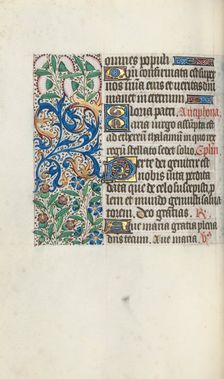 omnes populi
Qm confirmata est super
nos mia eius et veritas dni
manet in eternum
Gloria patri. Antiphona.
Maria virgo assumpta est
ad ethereum thalamum in quo rex
regum stellato sedet solio Cplm
Per te dei genitrix est
nobis vita perdita
data que de celo suscepisti p
lem et mundo genuisti salua
torem. Deo gratias. R
Aue maria gratia plena
dns tecum. Aue maria. V